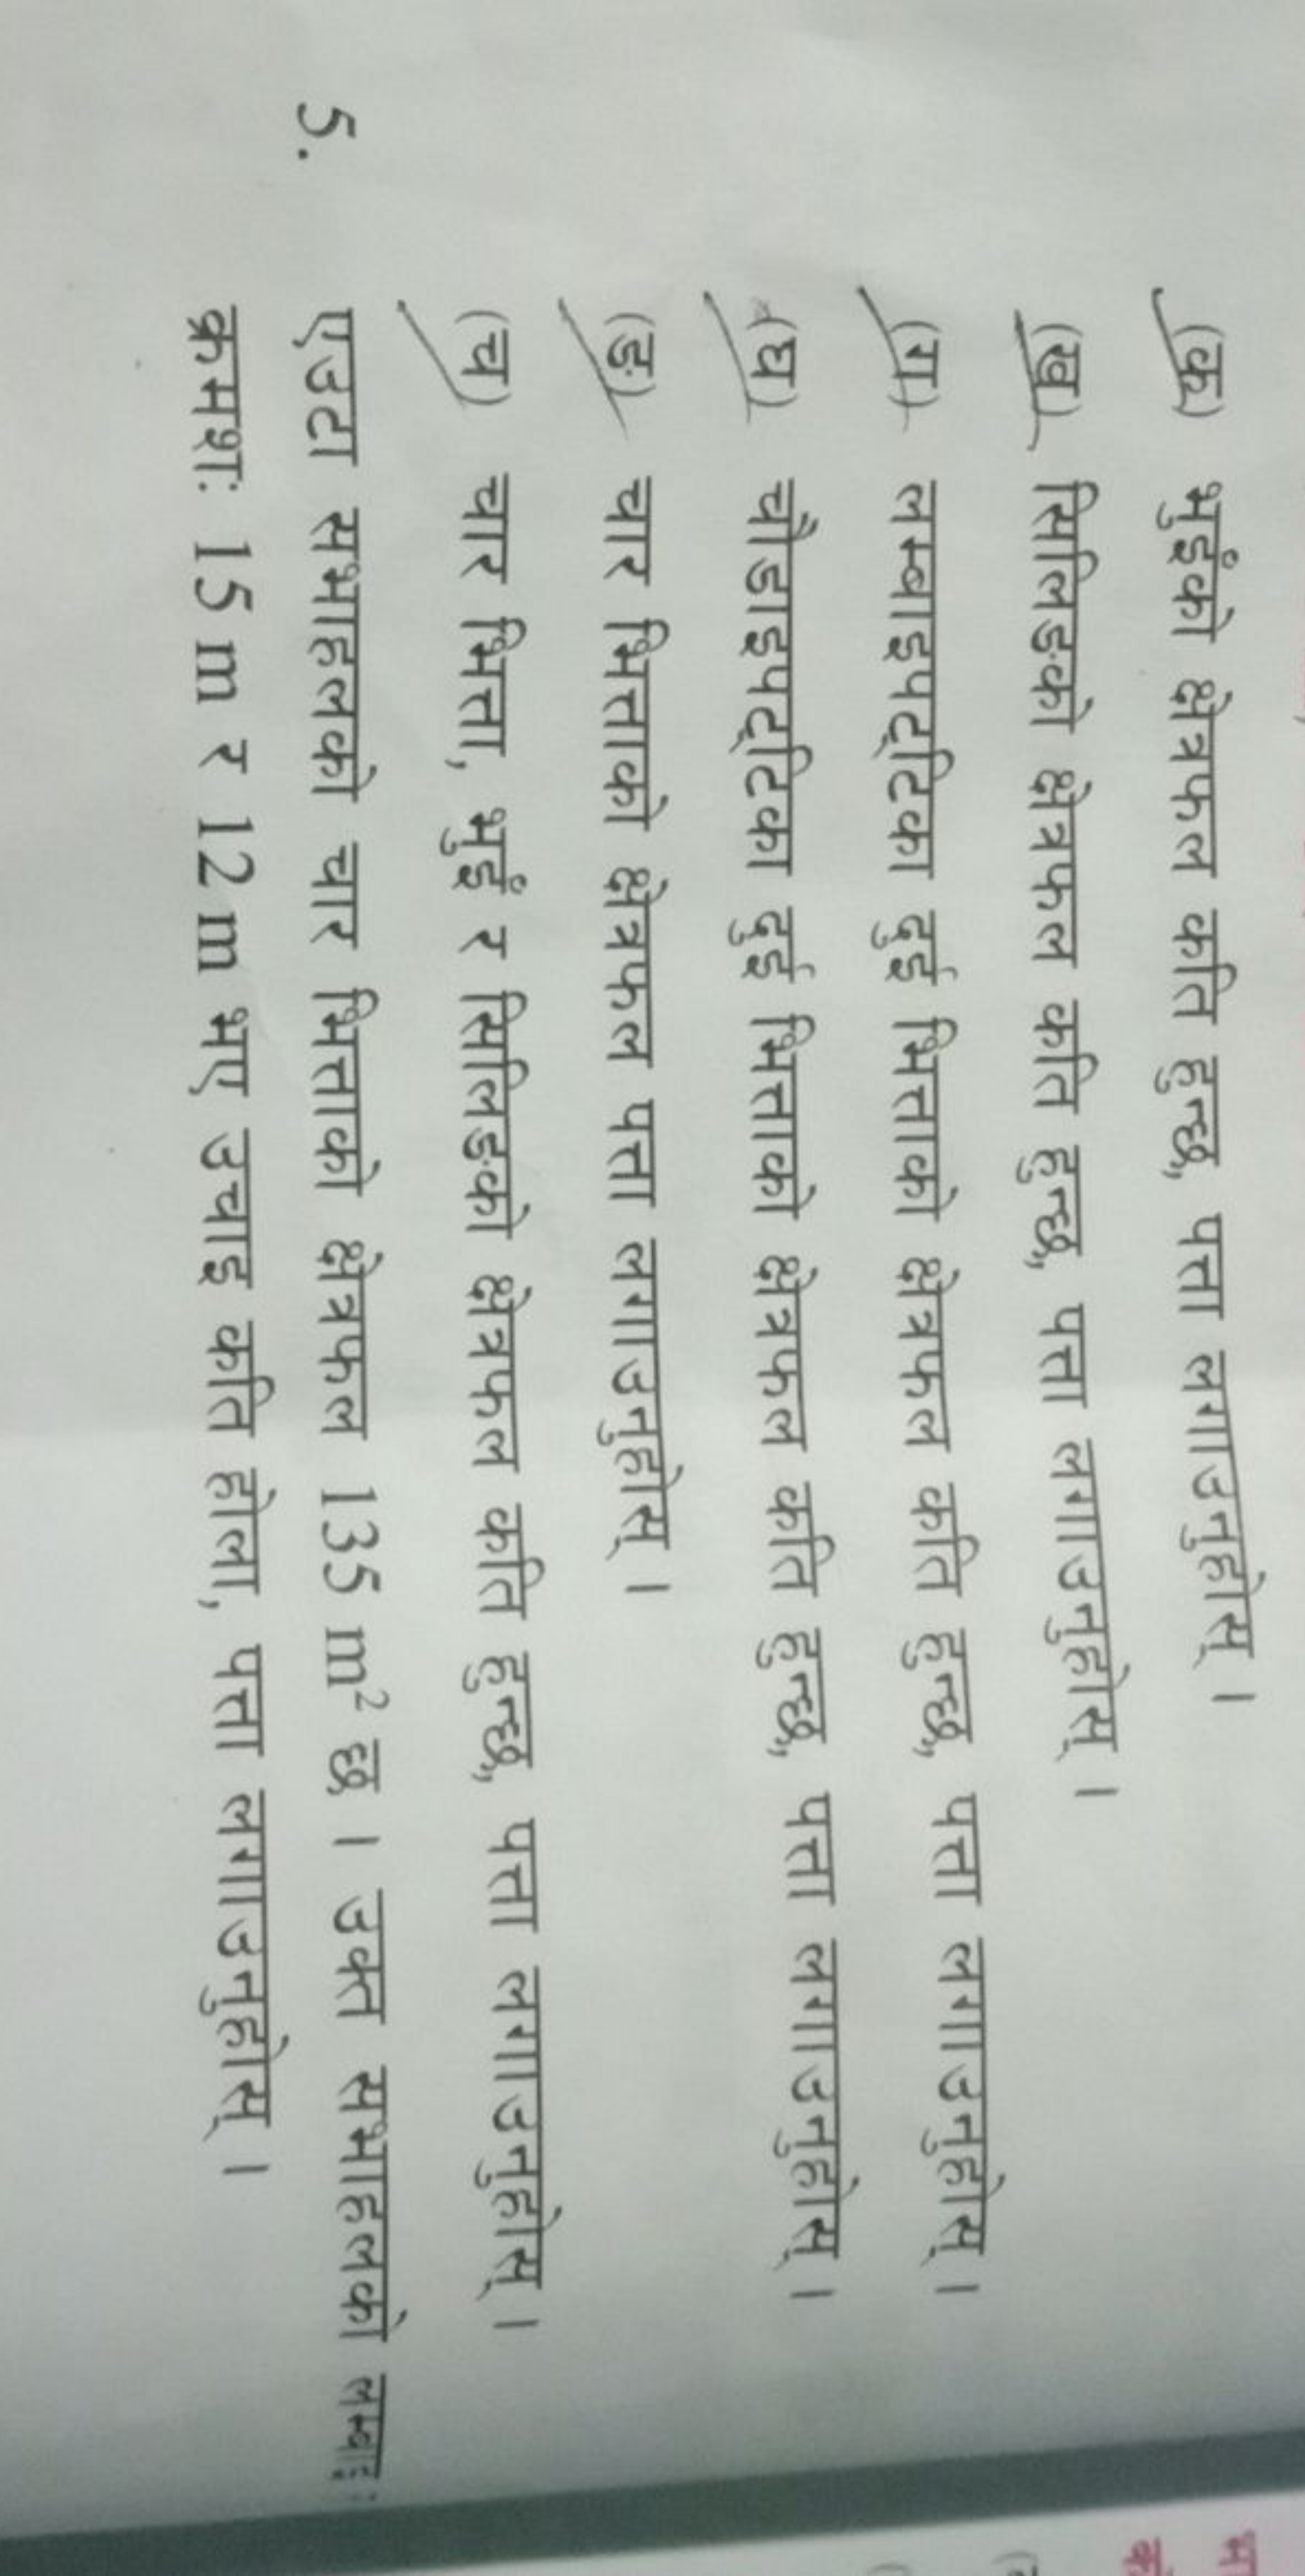 (क) भुइँको क्षेत्रफल कति हुन्छ, पत्ता लगाउनुहोस् ।
(ख) सिलिङको क्षेत्रफल कति हुन्छ, पत्ता लगाउनुहोस् ।
(ग) लम्बाइपट्टिका दुई भित्ताको क्षेत्रफल कति हुन्छ, पत्ता लगाउनुहोस् ।
(घ) चौडाइपट्टिका दुई भित्ताको क्षेत्रफल कति हुन्छ, पत्ता लगाउनुहोस् ।
(ङ) चार भित्ताको क्षेत्रफल पत्ता लगाउनुहोस् ।
(च) चार भित्ता, भुइँ र सिलिङको क्षेत्रफल कति हुन्छ, पत्ता लगाउनुहोस् ।
5. एउटा सभाहलको चार भित्ताको क्षेत्रफल 135 m² छ । उक्त सभाहलको
क्रमशः 15 m र 12 m भए उचाइ कति होला, पत्ता लगाउनुहोस् ।